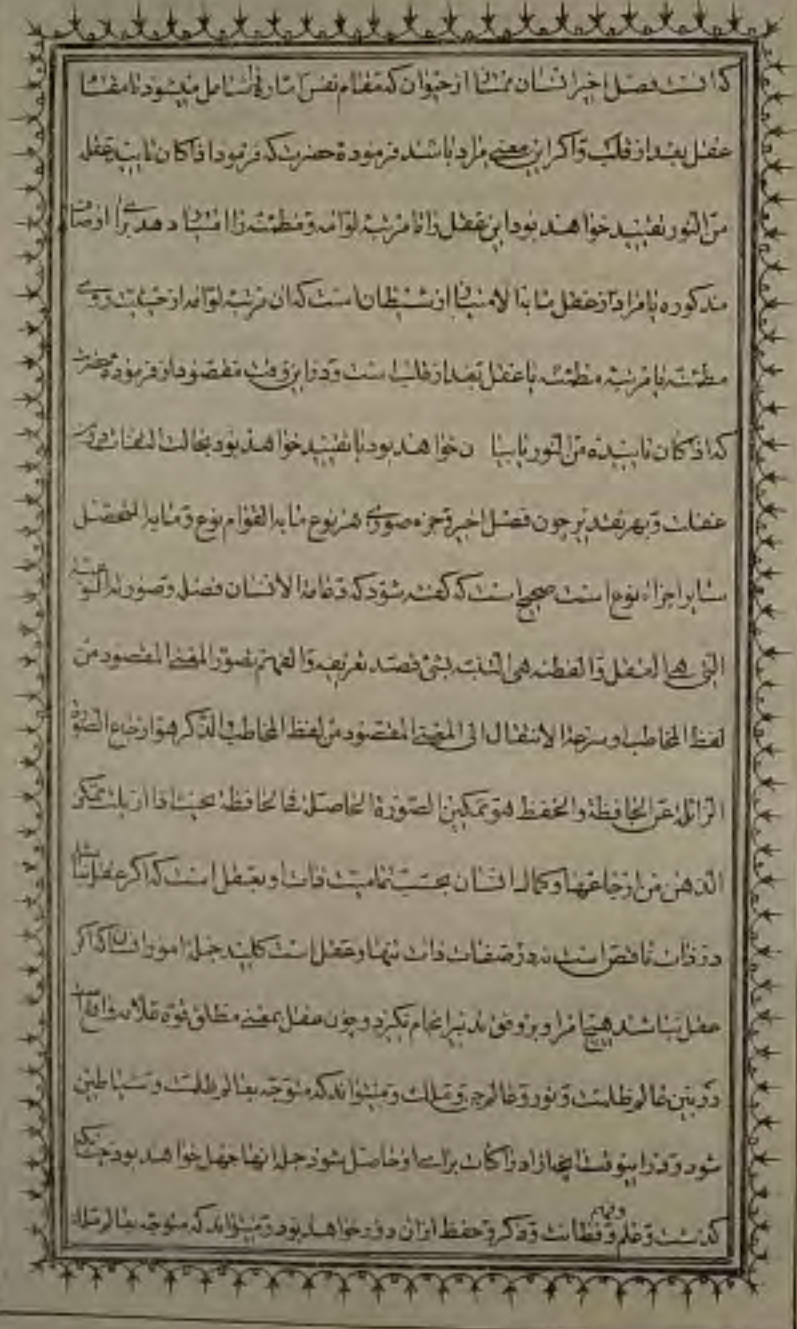 که اوست فصل اخیر انسان ممتاز از حیوان که مقام نفس اماره را شامل میشود تا مقام
عقل بعد از قلب و اگر این معنی مراد باشد فرموده حضرت که فرمود اذا کان تایید عقله
من النور تقیید خواهد بود این عقل را تا مرتبه لوامه و مطمئنه را امتیاز دهد
مذکوره یا مراد از عقل ما به الامتیاز از شیطان است که آن مرتبه لوامه از حیثیت روی
مطمئنه یا مرتبه مطمئنه یا عقل بعد از قلب است و در این وقت مقصود از فرموده حضرت
که اذا کان تاییده من النور خواهد بود یا تقیید خواهد بود بحالت التفات
عقلت و بهر تقدیر چون فصل اخیر و جزء صوری هر نوع ما به القوام نوع و ما به التحصل
سایر اجزاء نوع است صحیح است که گفته شود که دعامة الانسان فصله و صورته النوعیة
التی هی العقل و الفطنة هی التنبه بشیء قصد تعریفه و الفهم تصور المعنی المقصود من
لفظ المخاطب او سرعة الانتقال الی المعنی المقصود من لفظ المخاطب و الذکر هو ارجاع الصورة
الزائلة عن الحافظة و الحفظ هو تمکین الصورة الحاصلة فی الحافظة بحیث اذا زیلت تمکن
الذهن من ارجاعها و کمال انسان بحسب تمامیت ذات او بعقل است که اگر عقل نباشد
در ذات ناقص است نه در صفات ذات تنها و عقل است کلید جمله امور انسان که اگر
عقل نباشد هیچ امر او بر وفق تدبیر انجام نگیرد و چون عقل بمعنی مطلق قوه علامه واقع است
در بین عالم ظلمت و نور و عالم جن و ملک و میتواند که متوجه بعالم ظلمت و شیاطین
شود و در اینوقت آنچه از ادراکات برای او حاصل شود جمله آنها جهل خواهد بود چنانکه
گذشت و علم و فهم و فطانت و ذکر و حفظ از آن دور خواهد بود و میتواند که متوجه بعالم ملائکه